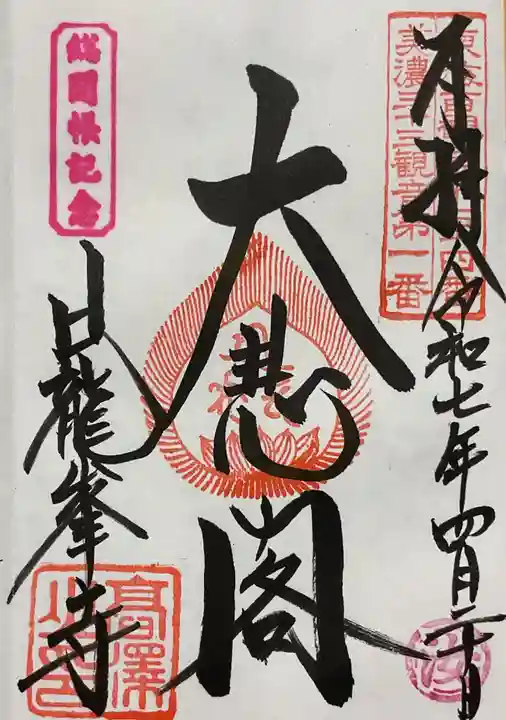 奉拝 令和七年四月二十日
美濃三十三観音第一番
大悲閣
総開帳記念
日龍峯寺
高澤